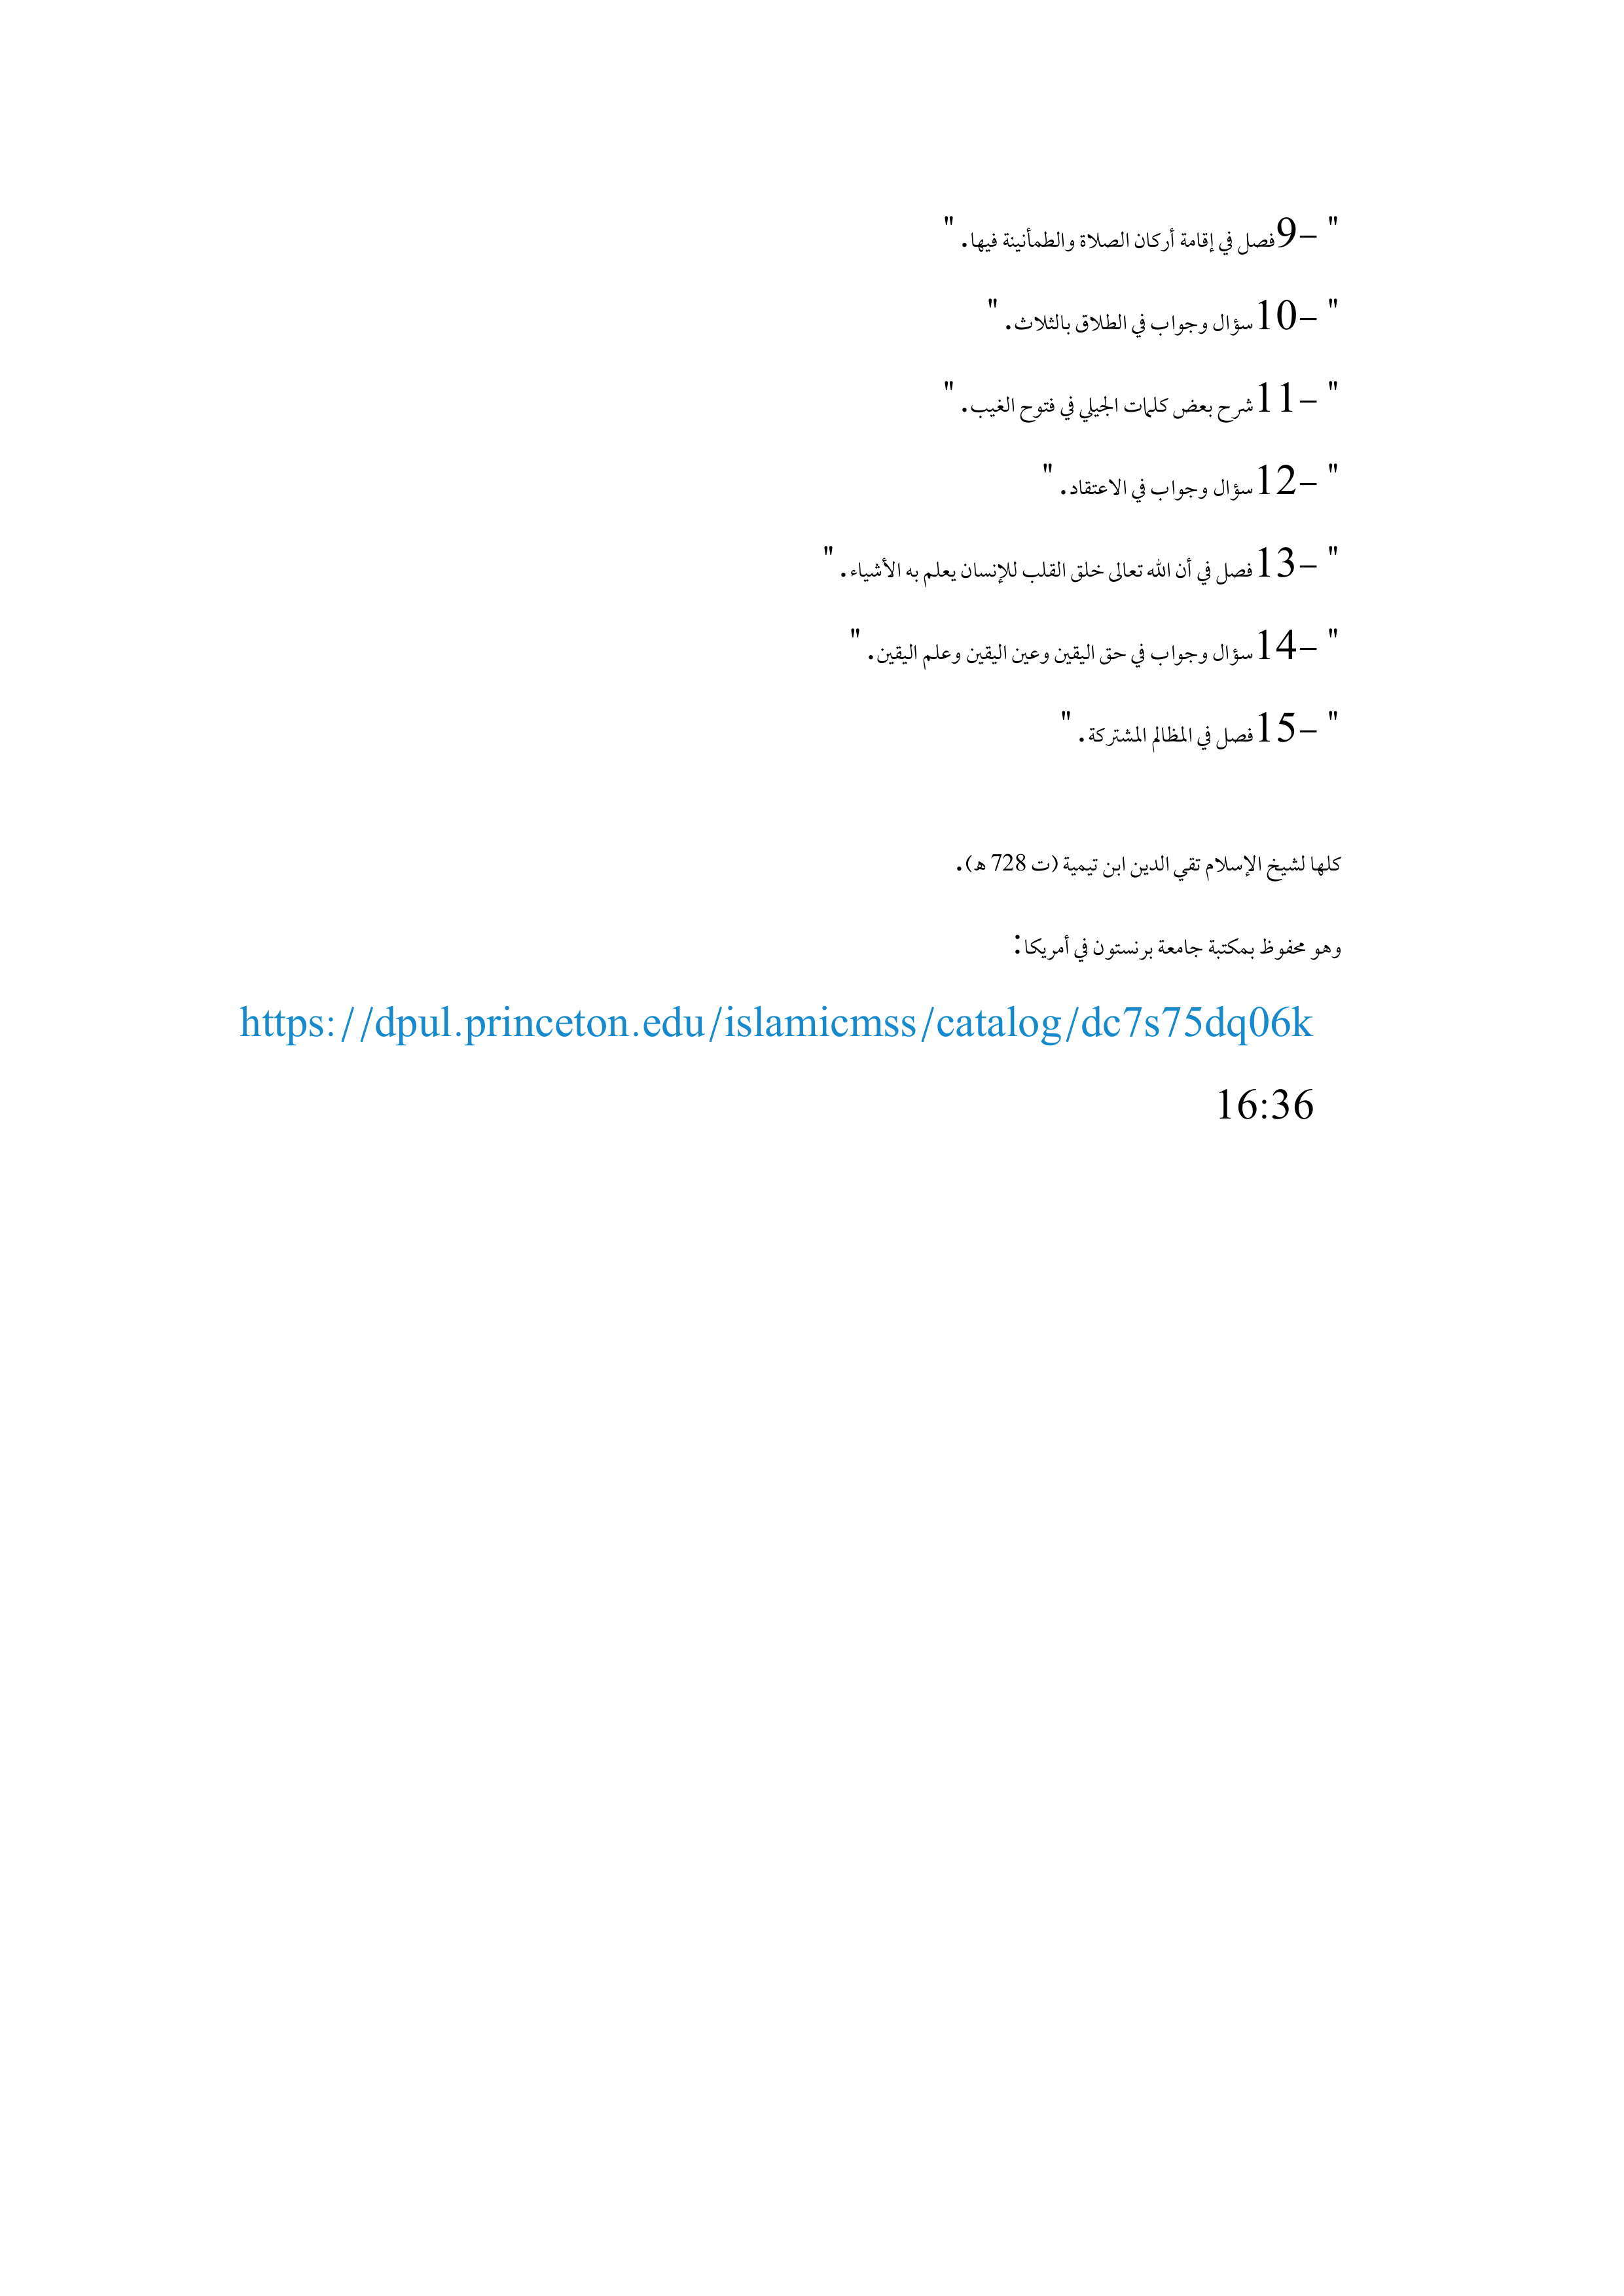 " -9فصل في إقامة أركان الصلاة والطمأنينة فيها. "
" -10سؤال وجواب في الطلاق بالثلاث. "
" -11شرح بعض كلمات الجيلي في فتوح الغيب. "
" -12سؤال وجواب في الاعتقاد. "
" -13فصل في أن الله تعالى خلق القلب للإنسان يعلم به الأشياء. "
" -14سؤال وجواب في حق اليقين وعين اليقين وعلم اليقين. "
" -15فصل في المظالم المشتركة. "
كلها لشيخ الإسلام تقي الدين ابن تيمية (ت 728 ه).
وهو محفوظ بمكتبة جامعة برنستون في أمريكا:
https://dpul.princeton.edu/islamicmss/catalog/dc7s75dq06k
16:36